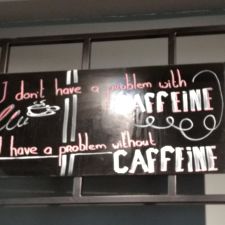 I don't have a problem with
CAFFEINE
I have a problem without
CAFFEINE